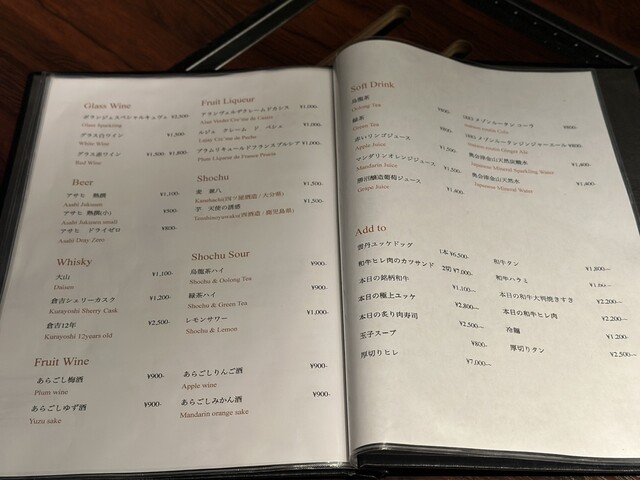 Glass Wine
ポランジェスペシャルキュヴェ ¥2,500
Glass Sparkling
グラス白ワイン ¥1,300-
White Wine
グラス赤ワイン ¥1,300 ¥1,800-
Red Wine
Beer
アサヒ 熟撰 ¥1,100-
Asahi Jukusen
アサヒ 熟撰(小) ¥800-
Asahi Jukusen small
アサヒ ドライゼロ ¥800-
Asahi Dray Zero
Whisky
大山 ¥1,100-
Daisen
倉吉シェリーカスク ¥1,200-
Kurayoshi Sherry Cask
倉吉12年 ¥2,500-
Kurayoshi 12years old
Fruit Wine
あらごし梅酒 ¥900-
Plum wine
あらごしゆず酒 ¥900-
Yuzu sake
Fruit Liqueur
¥1,000-
ルジェ クレーム ド ペシェ ¥1,000-
¥1,000-
Plum Liqueur de France Prucia
Shochu
麦 兼八 ¥1,500-
Kanehachi(四ツ屋酒造/大分県)
芋 天使の誘惑 ¥1,500-
Tenshinoyuwaku(西酒造/鹿児島県)
Shochu Sour
烏龍茶ハイ ¥900-
Shochu & Oolong Tea
緑茶ハイ ¥900-
Shochu & Green Tea
レモンサワー ¥1,000-
Shochu & Lemon
あらごしりんご酒 ¥900-
Apple wine
あらごしみかん酒 ¥900-
Mandarin orange sake
Soft Drink
烏龍茶 ¥800-
Oolong Tea
緑茶 ¥800-
Green Tea
赤いリンゴジュース ¥1,500
Apple Juice
マンダリンオレンジジュース ¥1,500
Mandarin Juice
葡萄ジュース ¥1,400
Grape Juice
1883 メゾンルータン コーラ ¥800-
1883 メゾンルータンジンジャーエール ¥800-
奥会津金山天然炭酸水 ¥1,400-
Japanese Mineral Sparkling Water
奥会津金山天然水 ¥1,400-
Japanese Mineral Water
Add to
雲丹ユッケドッグ 1本 ¥6,500-
和牛ヒレ肉のカツサンド 2切 ¥7,000-
本日の銘柄和牛 ¥1,100―
本日の極上ユッケ ¥2,800―
本日の炙り肉寿司 ¥2,500―
玉子スープ ¥800-
厚切りヒレ ¥7,000―
和牛タン ¥1,800―
和牛ハラミ
本日の和牛大判焼きすき ¥2,200―
本日の和牛ヒレ肉 ¥2,200―
冷麺 ¥1,200-
厚切りタン ¥2,500―